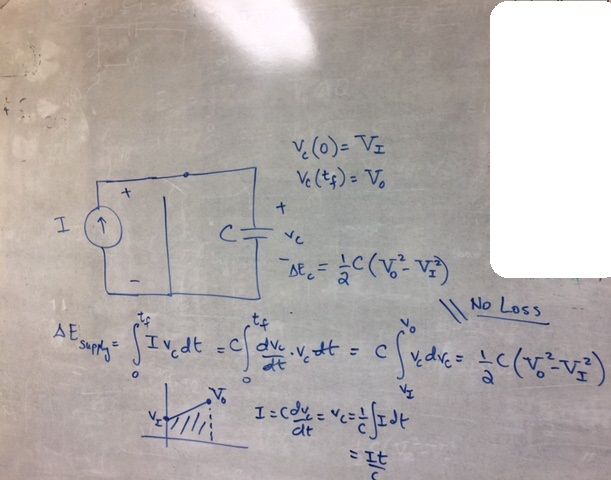 v_c(0) = V_I
v_c(t_f) = V_0
+
I
↑
C
+
v_c
-
-
ΔE_c = 1/2 C (V_0^2 - V_I^2)
\\ No Loss
ΔE_supply = ∫_0^{t_f} I v_c dt = C ∫_0^{t_f} dv_c/dt · v_c dt = C ∫_{V_I}^{V_0} v_c dv_c = 1/2 C (V_0^2 - V_I^2)
V_I
V_0
I = C dv_c/dt = v_c = 1/C ∫ I dt
= It/C